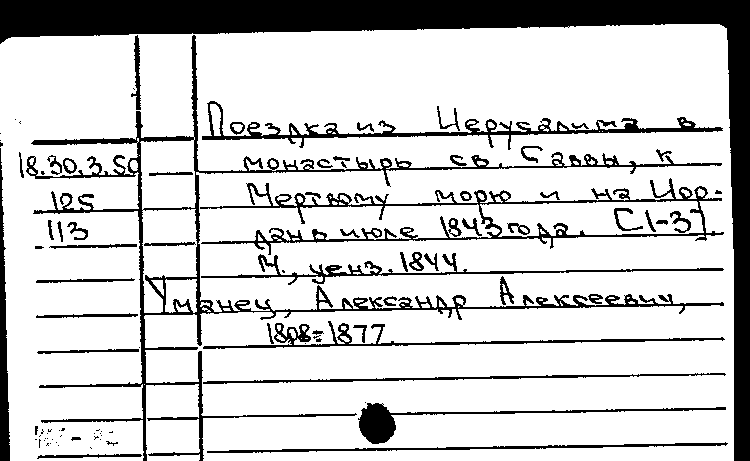 Поездка из Иерусалима в
18.30.3.50 монастырь св. Саввы, к
125 Мертвому морю и на Иор-
113 дань в июле 1843 года. [1-3].
М., ценз. 1844.
Уманец, Александр Алексеевич,
1808-1877.